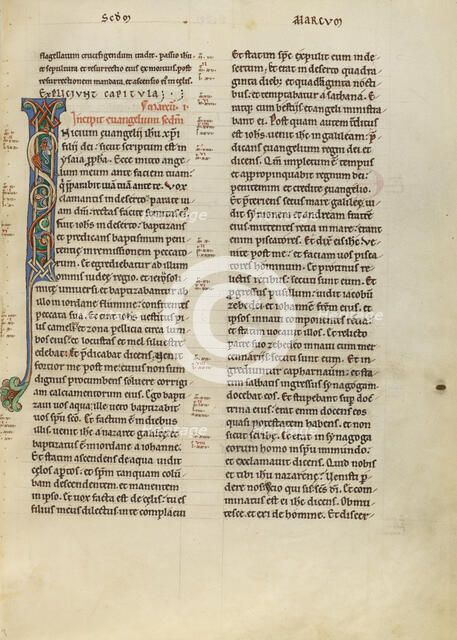 Scdm
Marcum
flagellatum crucifigendum tradit. passio ihu
et sepultura et resurrectio eius ex mortuis. post
resurrectionem mandata. et ascensio eius in celis.
Expliciunt capitula;
Incipit evangelium scdm
s marcu. i.
Inicium evangelij ihu xpi
filij dei: sicut scriptum est in
ysaia ppha. Ecce mitto ange
lum meum ante faciem tuam:
qi pparabit uia tua ante te. Vox
clamantis in deserto. parate ui
am dni: rectas facite semitas ei.
fuit iohs in deserto. baptizans
et predicans baptismum peni
tentie in remissionem peccato
rum. Et egrediebatur ad illum
omnis iudee regio. et ierosoli
mite universi et baptizabantur ab
illo in iordane flumine: confitentes
peccata sua. Et erat iohs uestitus pi
lis cameli. et zona pellicia circa lum
bos eius: et locustas et mel silvestre
edebat. Et pdicabat dicens. Venit
fortior me post me: cuius non sum
dignus procumbens soluere corrigi
am calciamentorum eius. Ego bapti
zavi uos aqua: ille uero baptizabit
uos spu sco. Et factum est in diebus
illis: uenit ihc a nazareth galilee. et
baptizatus est in iordane a iohanne.
Et statim ascendens de aqua. uidit
celos aptos. et spm tanquam colum
bam descendentem. et manentem
in ipso. Et uox facta est de celis: tu es
filius meus dilectus. in te complacui
Et statim spc expulit eum in de
sertum. et erat in deserto quadra
ginta dieb: et quadraginta nocti
bus: et temptabatur a sathana. Et
eratque cum bestijs: et angeli ministra
bant ei. Post quam autem traditus
est iohs. uenit ihc in galileam: p
dicans euangelium regni dei. et
dicens. Qm impletum est tempus
et appropinquabit regnum dei:
penitemini et credite euangelio.
Et preteriens secus mare galilee. uidit
simonem et andream fratrem
eius. mittentes retia in mare: erant
enim piscatores. Et dixit eis ihc. Ve
nite post me: et faciam uos pisca
tores hominum. Et protinus re
lictis retibus: secuti sunt eum. Et
pgressus pusillum: uidit iacobum
zebedei et iohanne frem eius. et
ipsos in naui componentes retia: et
statim uocauit illos. Et relicto
patre suo zebedeo in naui cum mer
cennarijs: secuti sunt eum. Et in
grediuntur capharnaum: et sta
tim sabbatis ingressus synagogam
docebat eos. Et stupebant sup doc
trina eius: erat enim docens eos
quasi potestatem habens. et non
sicut scribe. Et erat in synagoga
eorum homo in spu immundo:
et exclamauit dicens. Quid nobis
et tibi ihu nazarene: Venisti p
dere nos: scio qui sis scs di. Et com
minatus est ei ihc dicens. Obmu
tesce. et exi de homine. Et discer